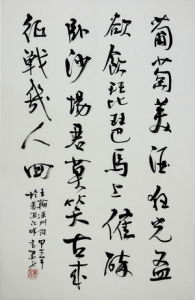 葡萄美酒夜光盃
欲飲琵琶馬上催醉
卧沙場君莫笑古来
征戰幾人回
王翰涼州詞甲